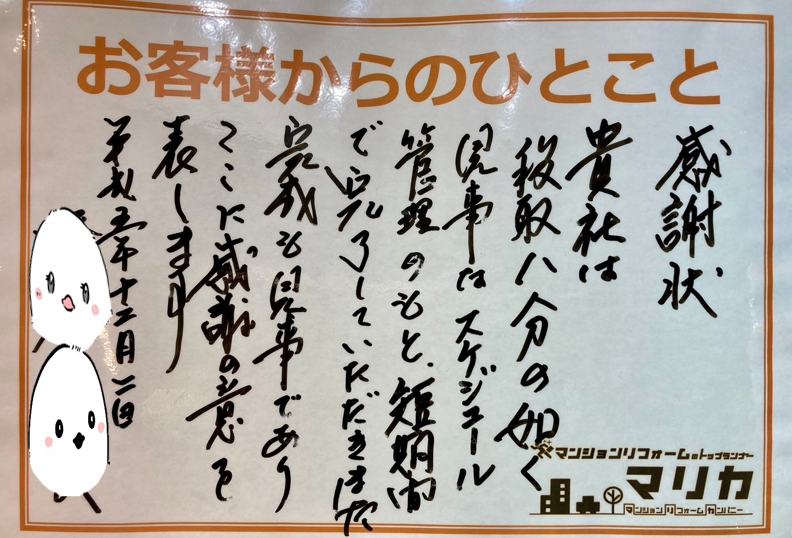 お客様からのひとこと
感謝状
貴社は
段取八分の如く
見事なスケジュール
管理のもと、短期間
で完了していただきまた
完成も見事であり
ここに感謝の意を
表します
五年十二月二日
マンションリフォームのトップランナー
マリカ
マンションリフォームカンパニー